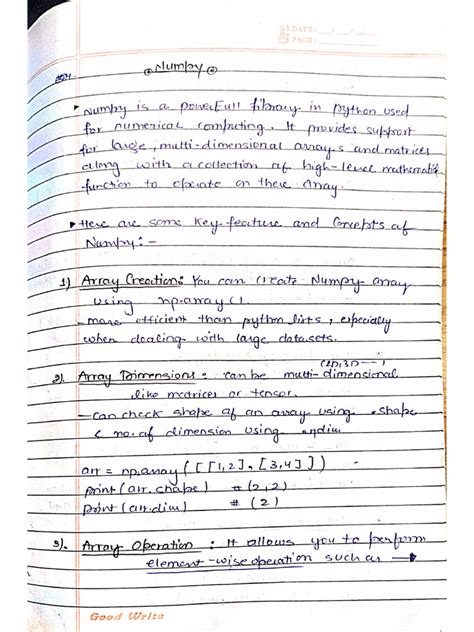 DATE: / /
PAGE:
Numpy
• Numpy is a powerfull library in python used
for numerical computing. It provides support
for large, multi-dimensional arrays and matrices
along with a collection of high-level mathematic
function to operate on these array.
• Here are some key-feature and concepts of
Numpy:-
1) Array Creation: You can create Numpy array
using np.array().
- more efficient than python lists, especially
when dealing with large datasets.
(2D,3D---)
2). Array Dimensions: can be multi-dimensional
like matrices or tensor.
- can check shape of an array using .shape
& no. of dimension using .ndim
arr = np.array([[1,2],[3,4]])
print(arr.shape) # (2,2)
print(arr.dim) # (2)
3). Array Operation: It allows you to perform
element-wise operation such as →
Good Write